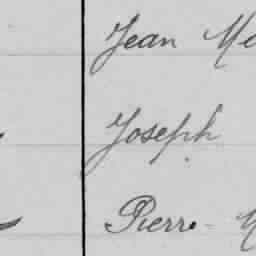 Jean Me
Joseph
Pierre - M